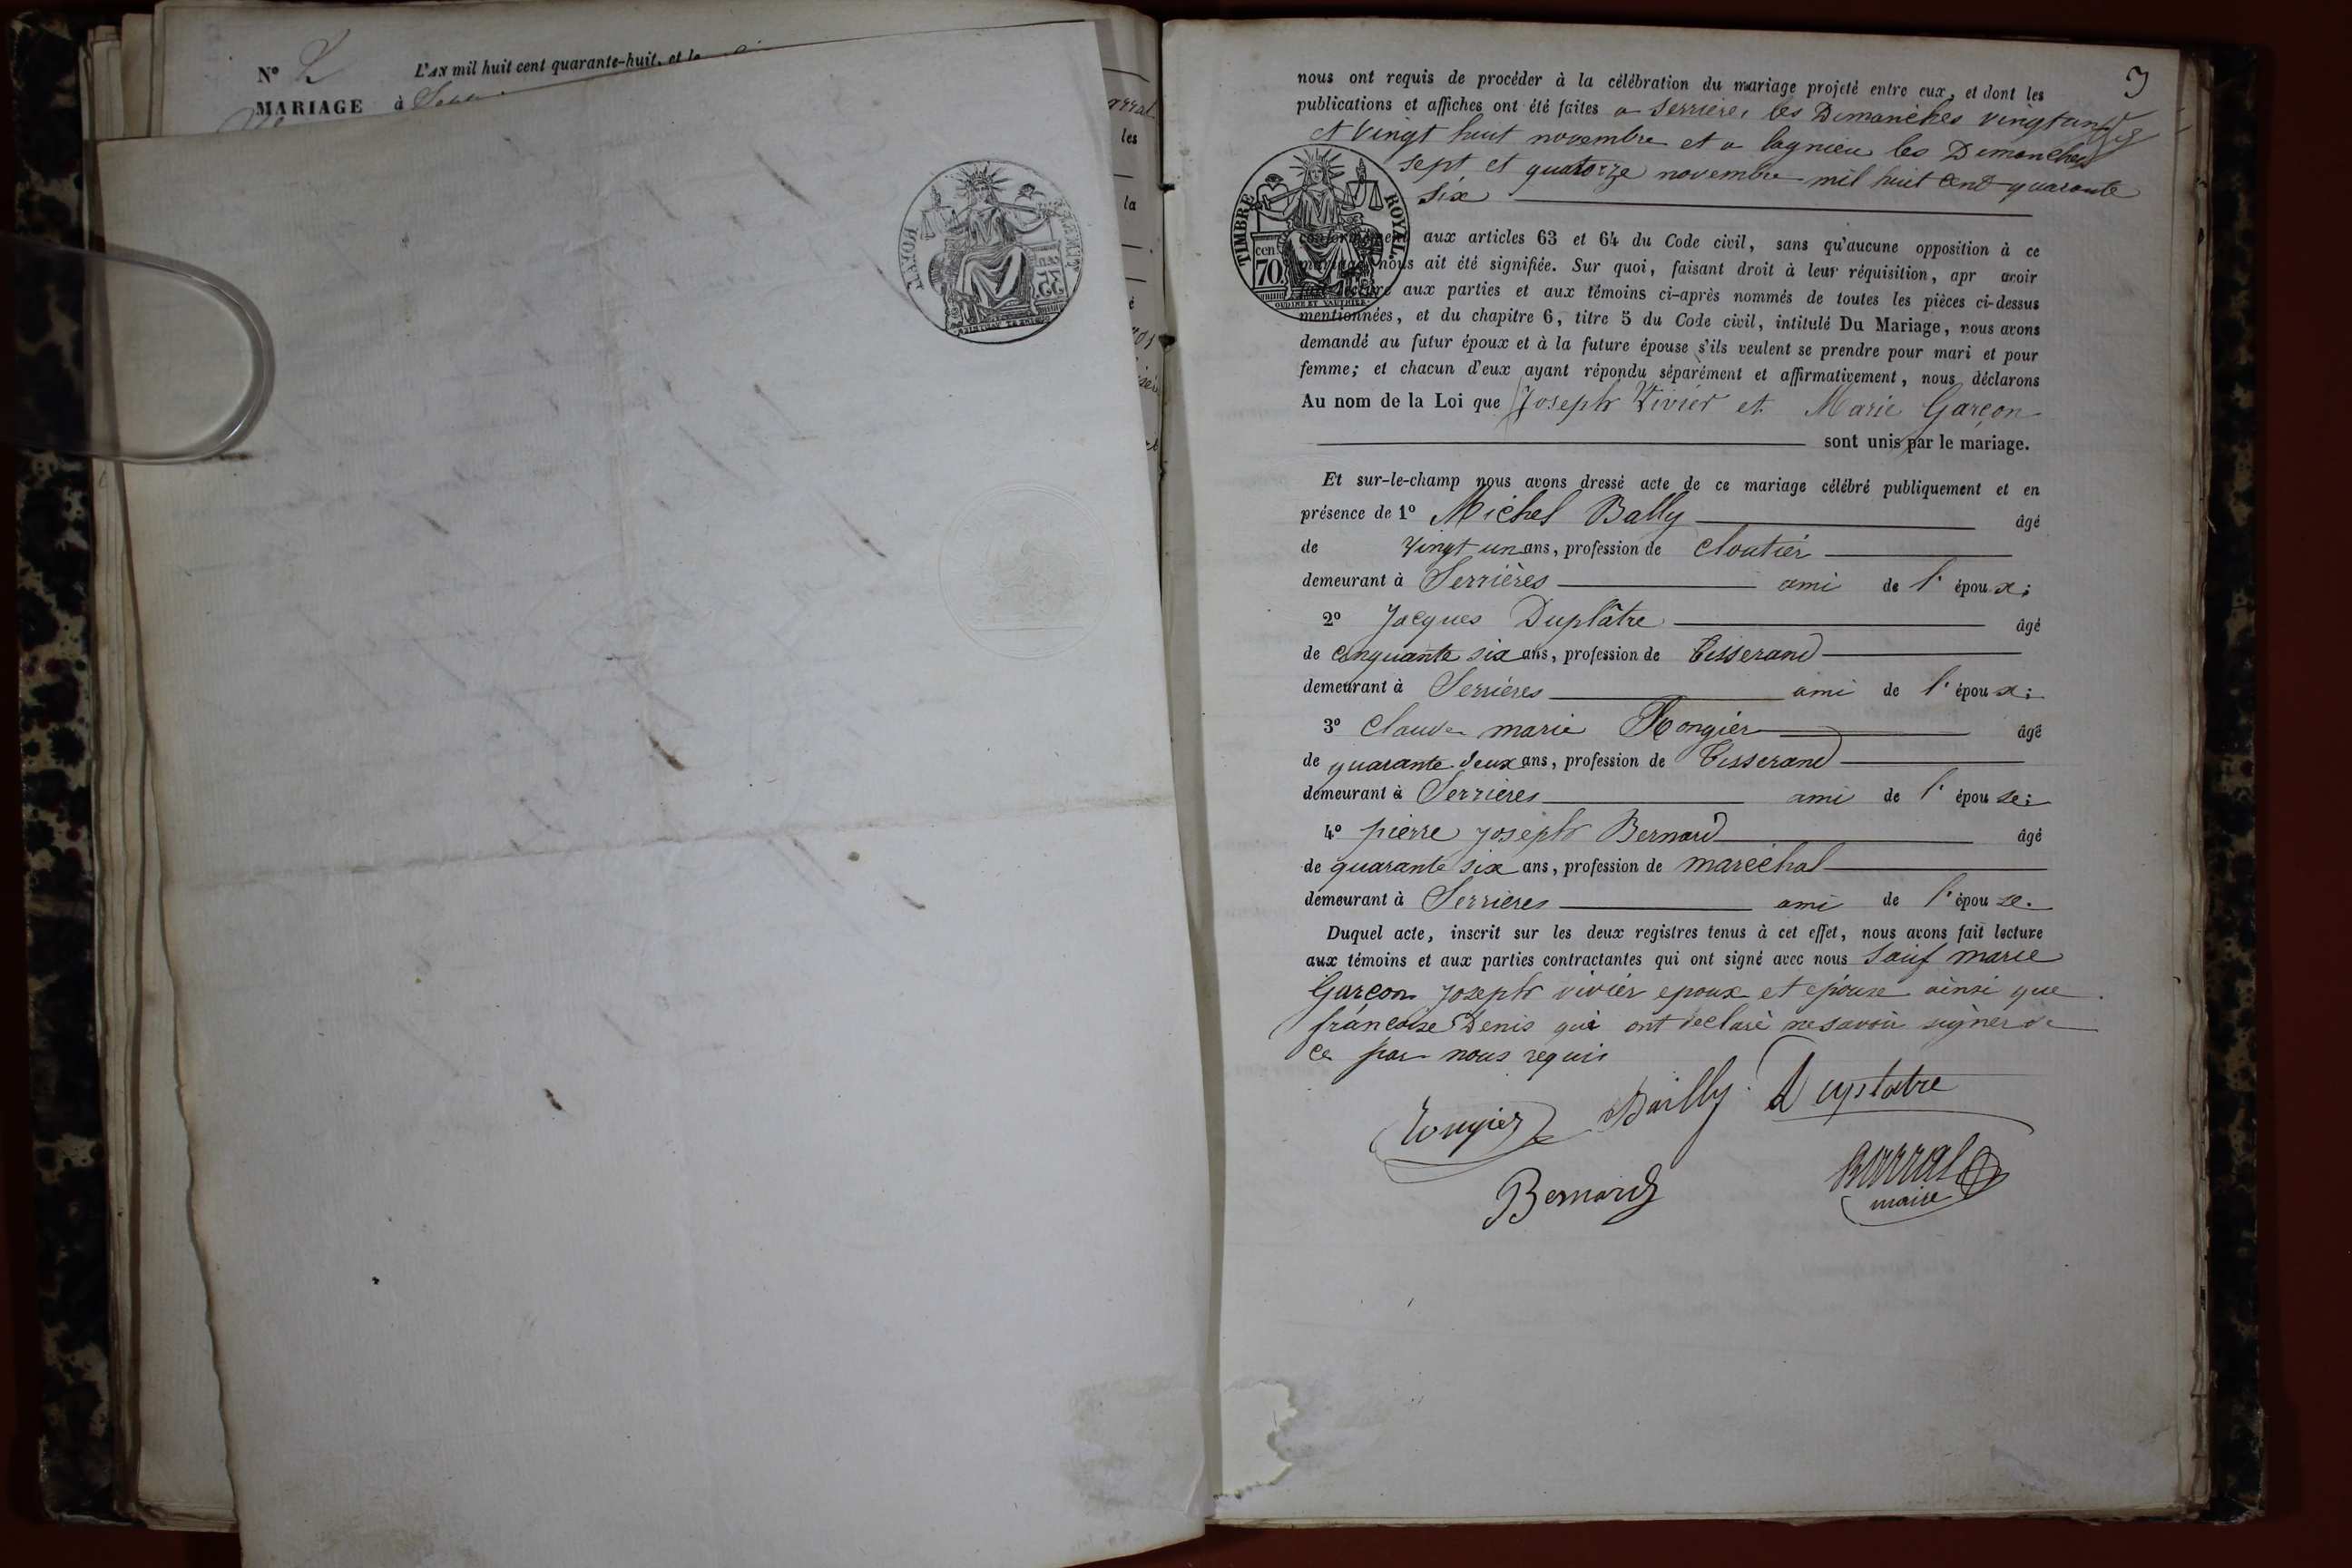 N° 2
L'AN mil huit cent quarante-huit, et le
MARIAGE à
les
la
3
nous ont requis de procéder à la célébration du mariage projeté entre eux, et dont les
publications et affiches ont été faites a Serrières les Dimanches vingt un
et vingt huit novembre et a lagnieu les Dimanches
sept et quatorze novembre mil huit cent quarante
six
TIMBRE ROYAL
cen. 70.
OUDINÉ ET VAUTHIER
conformément aux articles 63 et 64 du Code civil, sans qu'aucune opposition à ce
mariage nous ait été signifiée. Sur quoi, faisant droit à leur réquisition, apr avoir
lecture aux parties et aux témoins ci-après nommés de toutes les pièces ci-dessus
mentionnées, et du chapitre 6, titre 5 du Code civil, intitulé Du Mariage, nous avons
demandé au futur époux et à la future épouse s'ils veulent se prendre pour mari et pour
femme; et chacun d'eux ayant répondu séparément et affirmativement, nous déclarons
Au nom de la Loi que Joseph Vivier et Marie Garçon
sont unis par le mariage.
Et sur-le-champ nous avons dressé acte de ce mariage célébré publiquement et en
présence de 1° Michel Bally âgé
de vingt un ans, profession de cloutier
demeurant à Serrières ami de l' époux;
2° Jacques Duplâtre âgé
de cinquante six ans, profession de Tisserand
demeurant à Serrières ami de l' époux;
3° Claude marie Rongier âgé
de quarante deux ans, profession de Tisserand
demeurant à Serrières ami de l' épouse;
4° pierre joseph Bernard âgé
de quarante six ans, profession de maréchal
demeurant à Serrières ami de l' épouse.
Duquel acte, inscrit sur les deux registres tenus à cet effet, nous avons fait lecture
aux témoins et aux parties contractantes qui ont signé avec nous Sauf marie
Garçon Joseph vivier epoux et epouse ainsi que
françoise Denis qui ont declaré ne savoir signer de
ce par nous requis
Rongier Bailly Duplatre
Bernard Barral
maire